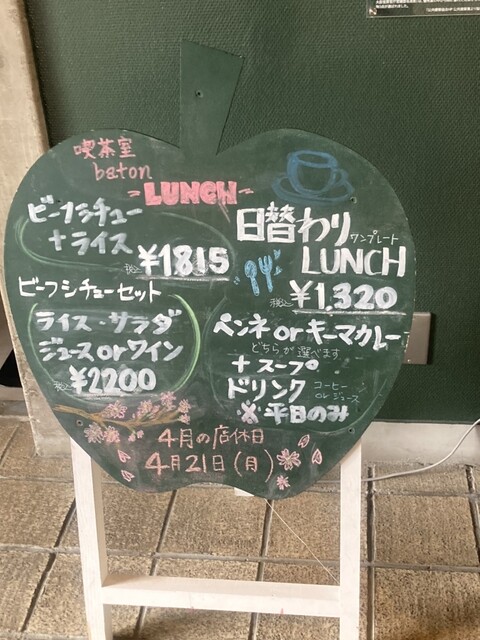 喫茶室
baton
-LUNCH-
ビーフシチュー
+ライス
税込 ¥1815
ビーフシチューセット
ライス・サラダ
ジュース or ワイン
税込 ¥2200
日替わり ワンプレート
LUNCH
税込 ¥1.320
ペンネ or キーマカレー
どちらか選べます
+スープ
ドリンク コーヒー or ジュース
※平日のみ
4月の店休日
4月21日(月)